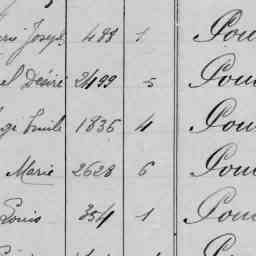 Joseph 488 1 Pou
Désiré 2499 5 Pou
Emile 1835 4 Pou
Marie 2628 6 Pou
Louis 354 1 Pou